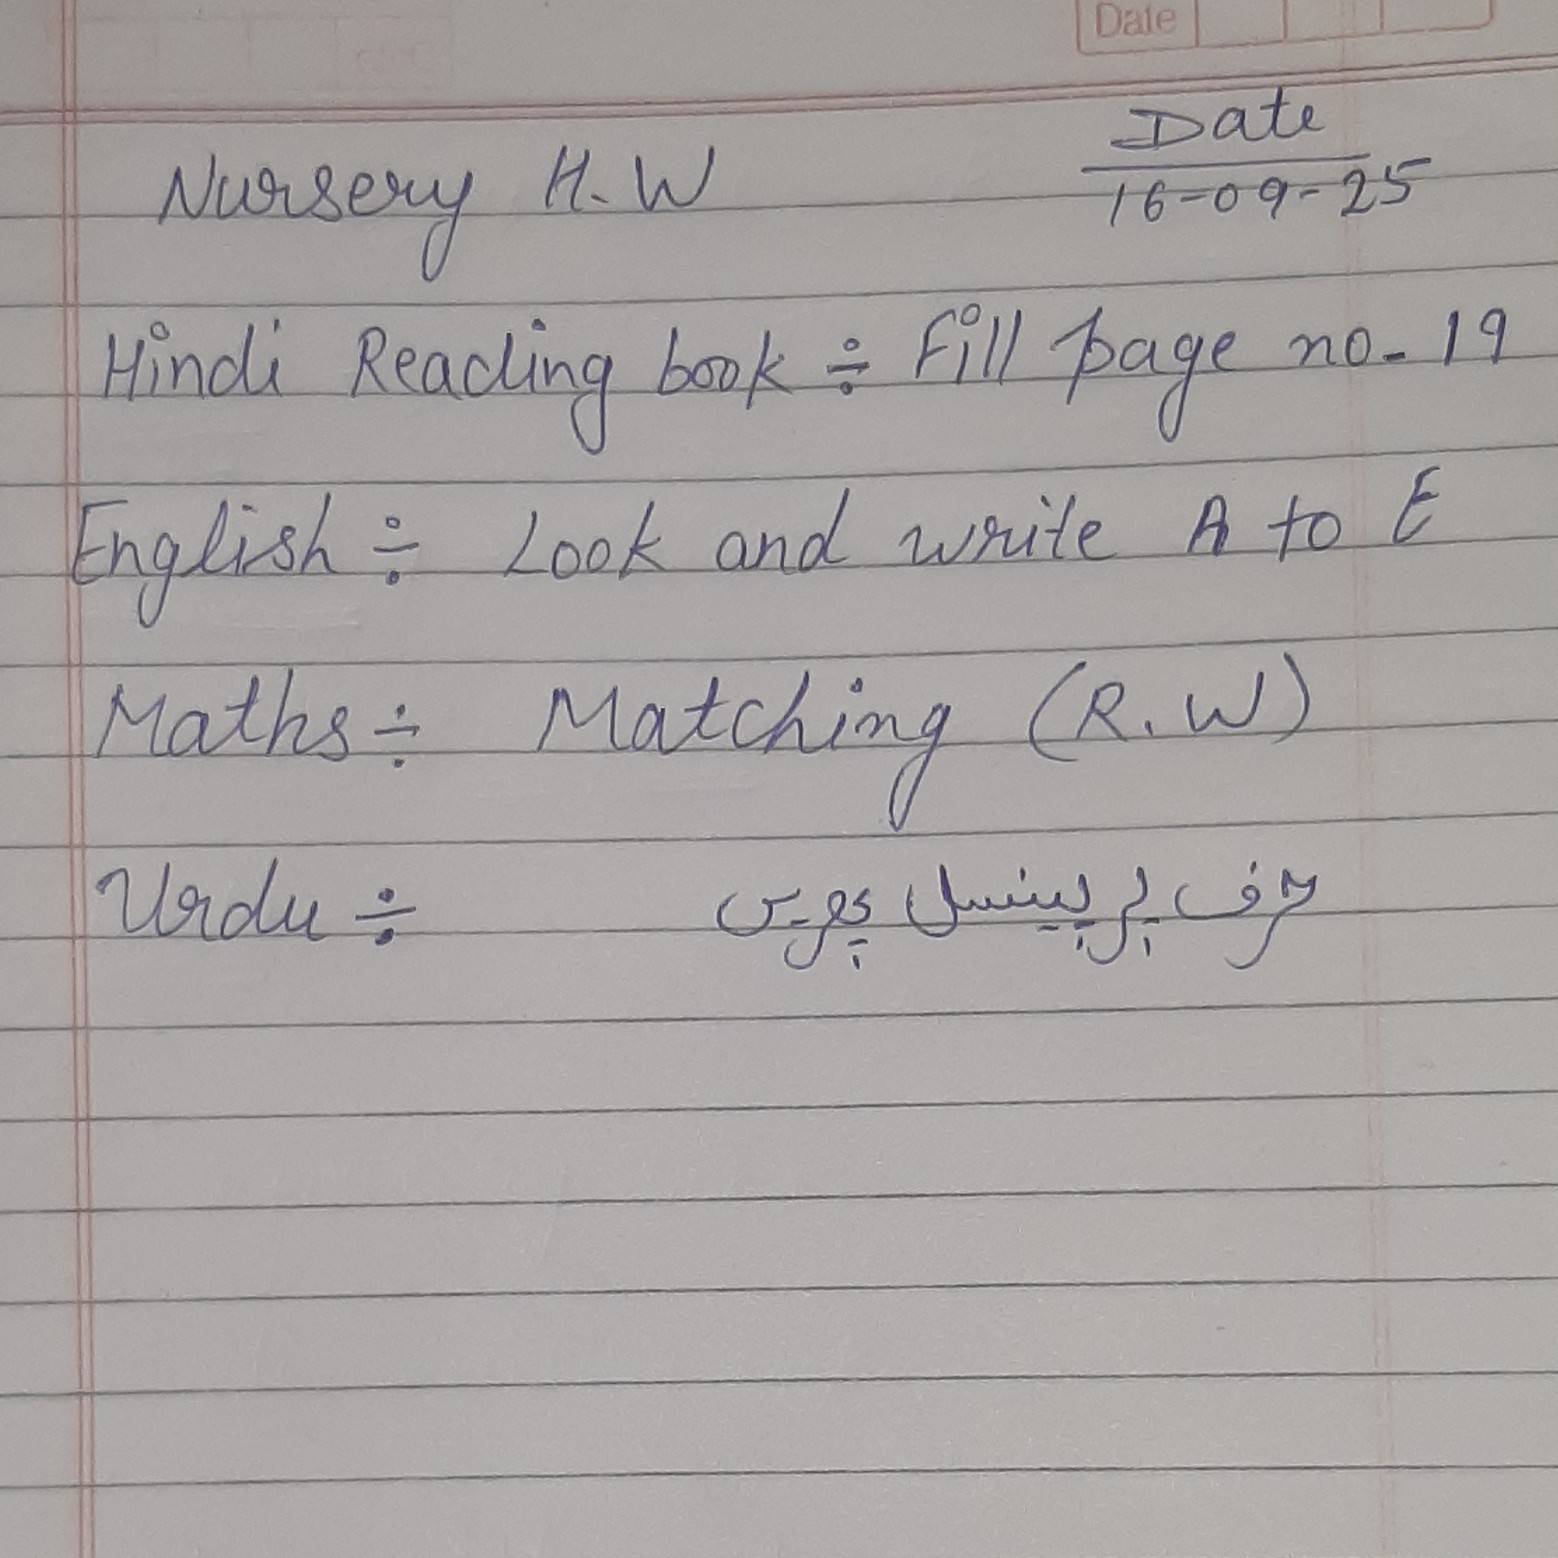 Date
Date
Nursery H.W
16-09-25
Hindi Reading book ÷ Fill page no. 19
English ÷ Look and write A to E
Maths ÷ Matching (R.W)
Urdu ÷ حرف پر پینسل پھیریں